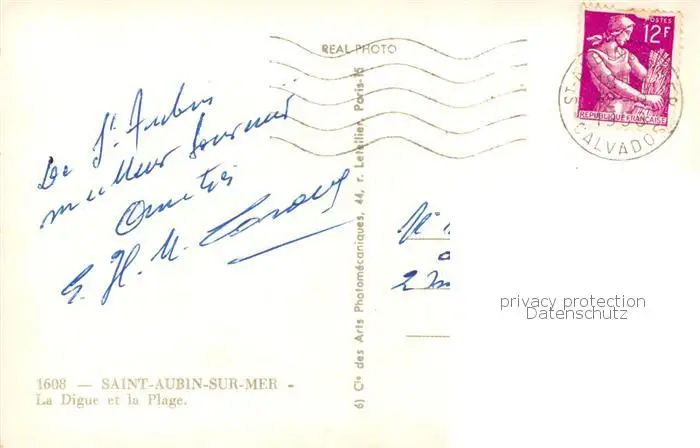 REAL PHOTO
POSTES
12F
REPUBLIQUE FRANÇAISE
CALVADOS
De St Aubin
meilleur souvenir
Amitiés
2
6) Cie des Arts Photomécaniques, 44, r. Letellier, Paris-15
privacy protection
Datenschutz
1608 — SAINT-AUBIN-SUR-MER -
La Digue et la Plage.